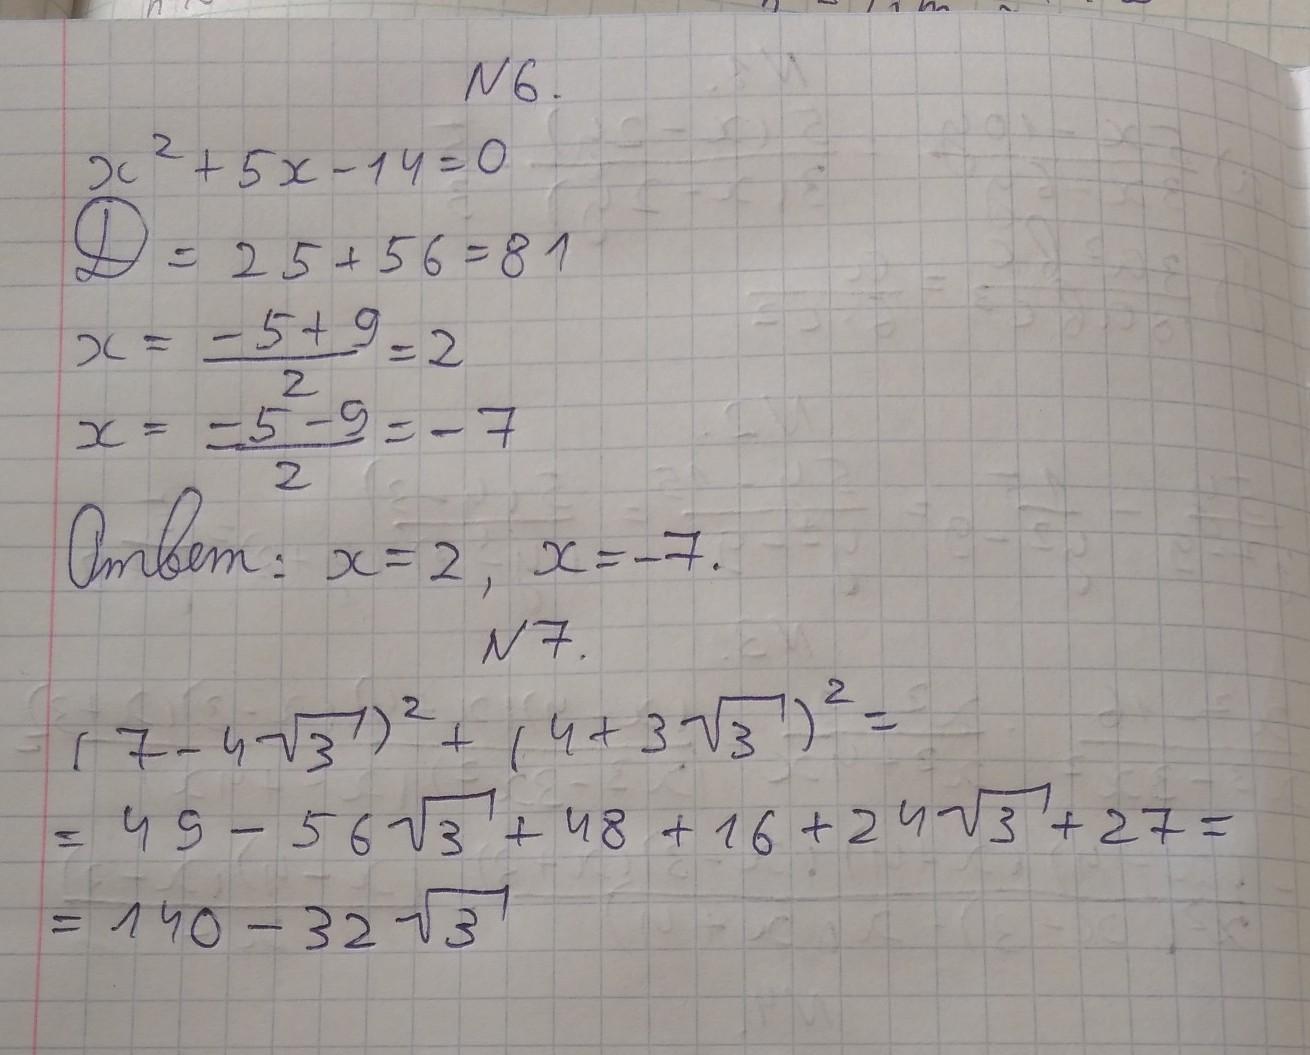 N6.
x² + 5x - 14 = 0
D = 25 + 56 = 81
x = (-5 + 9)/2 = 2
x = (-5 - 9)/2 = -7
Ответ: x = 2, x = -7.
N7.
(7 - 4√3)² + (4 + 3√3)² =
= 49 - 56√3 + 48 + 16 + 24√3 + 27 =
= 140 - 32√3